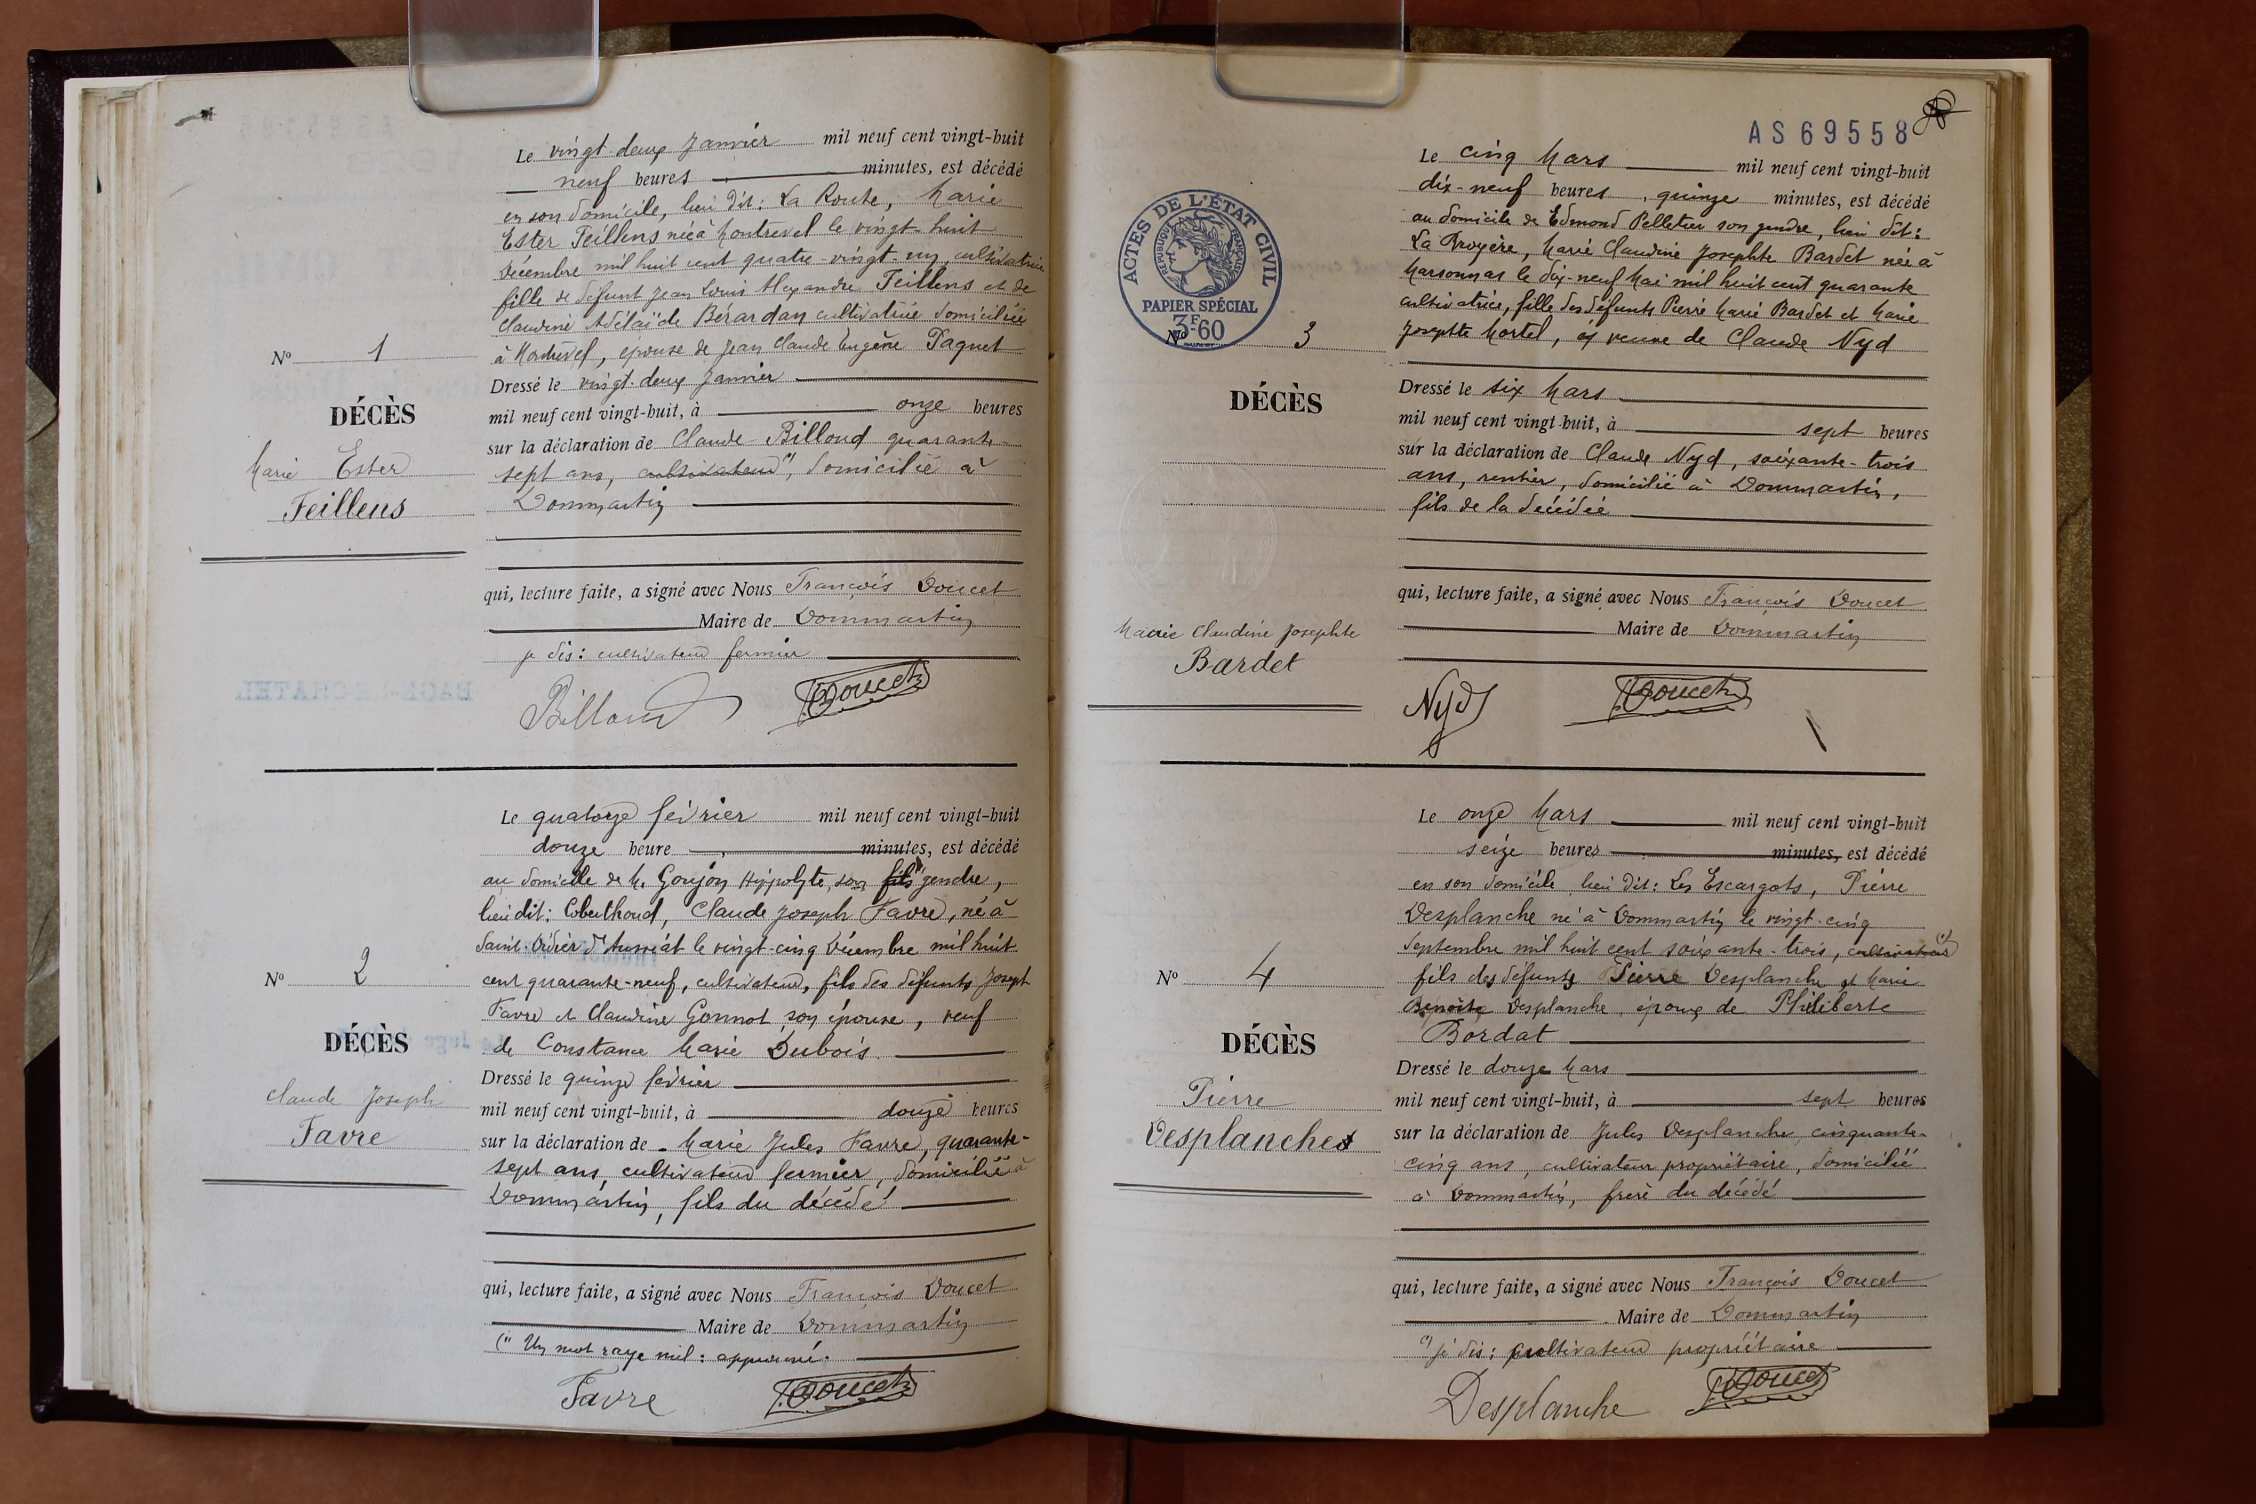 Le vingt-deux Janvier mil neuf cent vingt-huit
neuf heures minutes, est décédé
en son domicile, lieu dit: La Route, Marie
Ester Feillens née à Montrevel le vingt-huit
Décembre mil huit cent quatre-vingt-un, cultivatrice
fille de défunt Jean Louis Alexandre Feillens et de
Claudine Adélaïde Bérardan cultivatrice domiciliée
à Montrevel, épouse de Jean Claude Eugène Paquet
Dressé le vingt-deux Janvier
mil neuf cent vingt-huit, à onze heures
sur la déclaration de Claude Billoud quarante-
sept ans, cultivateur (1), domicilié à
Dommartin
qui, lecture faite, a signé avec Nous François Doucet
Maire de Dommartin
je dis: cultivateur fermier
Billoud Doucet
No 1
DÉCÈS
Marie Ester
Feillens
Le quatorze février mil neuf cent vingt-huit
douze heure minutes, est décédé
au domicile de M. Goujon Hyppolyte, son fils (1) gendre,
lieu dit: Coberthoud, Claude Joseph Favre, né à
Saint-Didier d'Aussiat le vingt-cinq Décembre mil huit
cent quarante-neuf, cultivateur, fils des défunts Joseph
Favre et Claudine Gonnot son épouse, veuf
de Constance Marie Dubois
Dressé le quinze février
mil neuf cent vingt-huit, à douze heures
sur la déclaration de Marie Jules Favre, quarante-
sept ans, cultivateur fermier, domicilié à
Dommartin, fils du décédé
qui, lecture faite, a signé avec Nous François Doucet
Maire de Dommartin
(1) Un mot rayé nul: approuvé.
Favre Doucet
No 2
DÉCÈS
Claude Joseph
Favre
AS69558
ACTES DE L'ÉTAT CIVIL
RÉPUBLIQUE FRANÇAISE
PAPIER SPÉCIAL
3F60
Le cinq Mars mil neuf cent vingt-huit
dix-neuf heures quinze minutes, est décédé
au domicile de Edmond Pelletier son gendre, lieu dit:
La Bruyère, Marie Claudine Josephte Bardet née à
Marsonnas le dix-neuf Mai mil huit cent quarante
cultivatrice, fille des défunts Pierre Marie Bardet et Marie
Josephte Mortel, veuve de Claude Nyd
Dressé le six Mars
mil neuf cent vingt-huit, à sept heures
sur la déclaration de Claude Nyd, soixante-trois
ans, rentier, domicilié à Dommartin,
fils de la décédée
qui, lecture faite, a signé avec Nous François Doucet
Maire de Dommartin
Nyd Doucet
No 3
DÉCÈS
Marie Claudine Josephte
Bardet
Le onze Mars mil neuf cent vingt-huit
seize heures minutes, est décédé
en son domicile lieu dit: Les Escargots, Pierre
Desplanche né à Dommartin le vingt-cinq
Septembre mil huit cent soixante-trois, cultivateur (1)
fils des défunts Pierre Desplanche et Marie
Benoite Desplanche, époux de Philiberte
Bordat
Dressé le douze Mars
mil neuf cent vingt-huit, à sept heures
sur la déclaration de Jules Desplanche, cinquante-
cinq ans, cultivateur propriétaire, domicilié
à Dommartin, frère du décédé
qui, lecture faite, a signé avec Nous François Doucet
Maire de Dommartin
(1) je dis: cultivateur propriétaire
Desplanche Doucet
No 4
DÉCÈS
Pierre
Desplanches